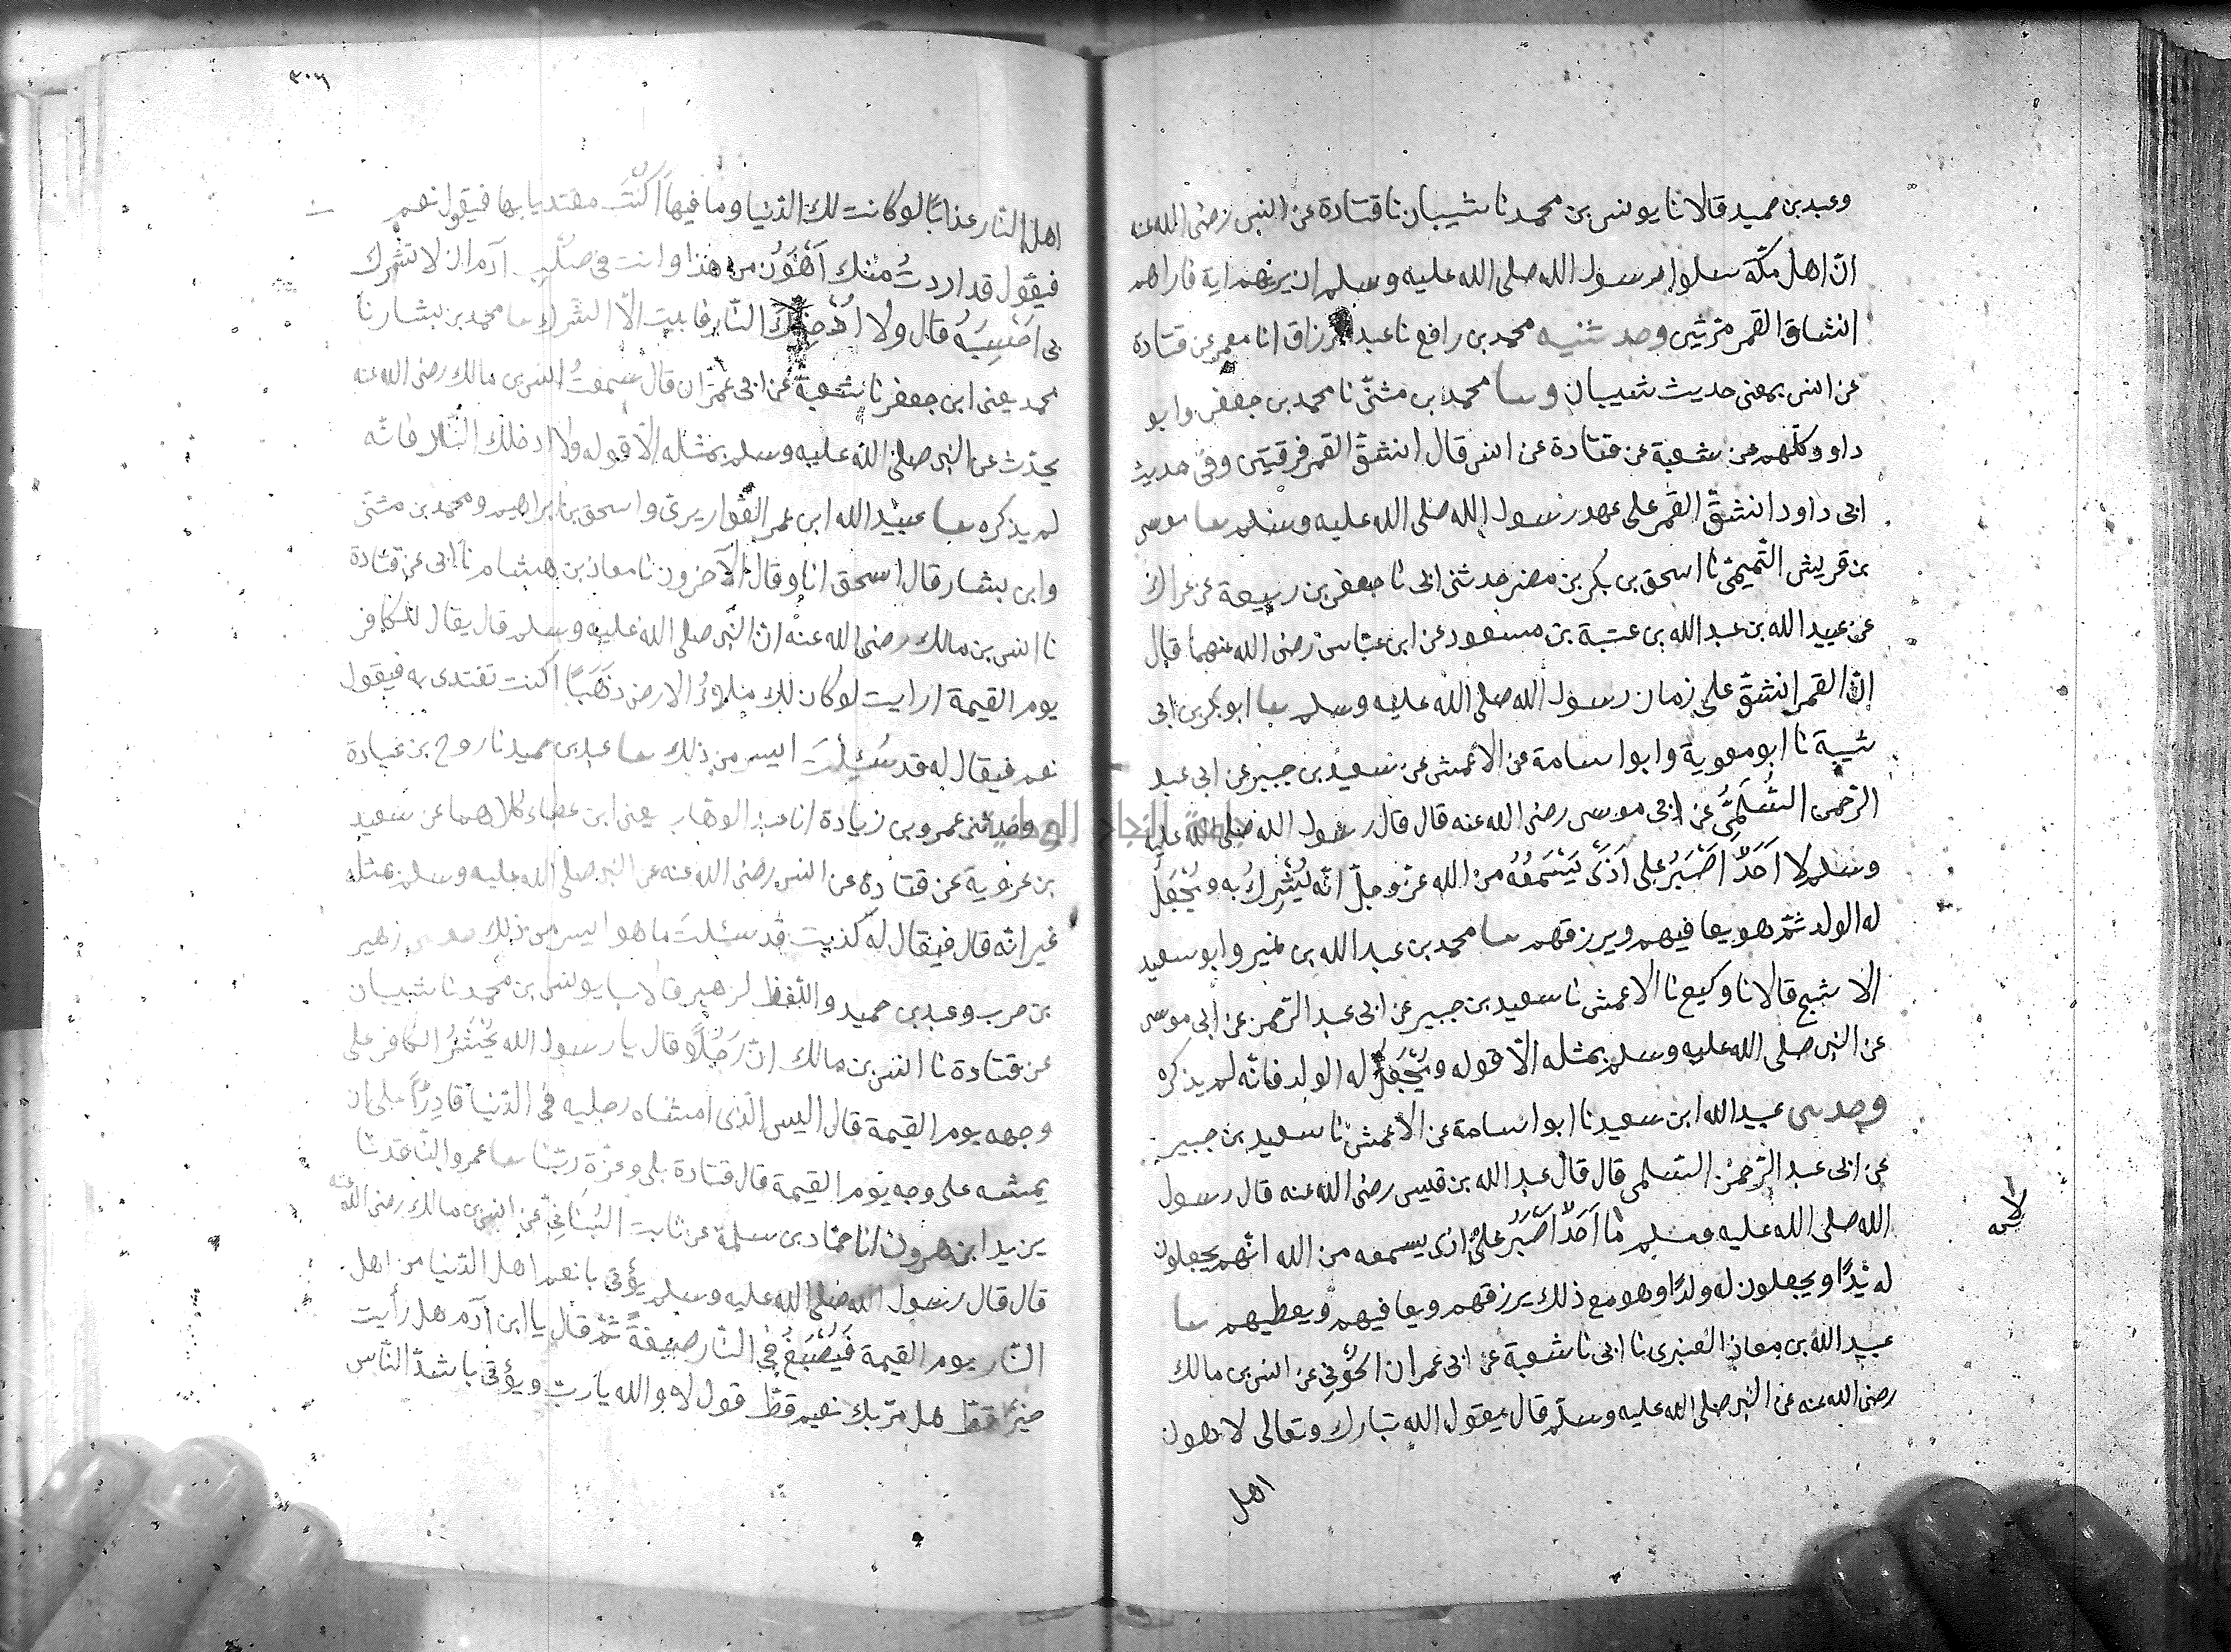 وعبد بن حميد قالا نا يونس بن محمد نا شيبان نا قتادة عن انس رضى الله عنه
ان اهل مكة سلوا رسول الله صلى الله عليه وسلم ان يريهم اية فاراهم
انشقاق القمر مرتين وحدثنيه محمد بن رافع نا عبد الرزاق انا معمر عن قتادة
عن انس بمعنى حديث شيبان وسا محمد بن مثنّى نا محمد بن جعفر وابو
داود كلهم عن شعبة عن قتادة عن انس قال انشقّ القمر فرقتين وفى حديث
ابى داود انشقّ القمر على عهد رسول الله صلى الله عليه وسلم سا موسى
بن قريش التميمىّ نا اسحق بن بكر بن مضر حدثنى ابى نا جعفر بن ربيعة عن عراك
عن عبيد الله بن عبد الله بن عتبة بن مسعود عن ابن عبّاس رضى الله عنهما قال
انّ القمر انشقّ على زمان رسول الله صلى الله عليه وسلم سا ابو بكر بن ابى
شيبة نا ابو معوية وابو اسامة عن الاعمش عن سعيد بن جبير عن ابى عبد
الرّحمن السُّلَمِىّ عن ابى موسى رضى الله عنه قال قال رسول الله صلى الله عليه
وسلم لا اَحَدٌ اَصْبَرُ على اَذًى يَسْمَعُهُ من الله عزّ وجلّ انّه يُشْرَكُ به ويُجْعَلُ
له الولد ثمّ هو يعافيهم ويرزقهم سا محمد بن عبد الله بن نمير وابو سعيد
الاشج قالا نا وكيع نا الاعمش نا سعيد بن جبير عن ابى عبد الرّحمن عن ابى موسى
عن النبى صلى الله عليه وسلم بمثله الّا قوله ويُجْعَلُ له الولد فانّه لم يذكره
وحدسى عبيد الله ابن سعيد نا ابو اسامة عن الاعمش نا سعيد بن جبير
عن ابى عبد الرّحمن السّلمى قال قال عبد الله بن قيس رضى الله عنه قال رسول
الله صلى الله عليه وسلم ما اَحَدٌ اَصْبَرُ على اذى يسمعه من الله انّهم يجعلون
لاسه
له نِدًّا ويجعلون له ولدًا وهو مع ذلك يرزقهم ويعافيهم ويعطيهم سا
عبيد الله بن معاذ العنبرى نا ابى نا شعبة عن ابى عمران الجَوْنِى عن انس بن مالك
رضى الله عنه عن النبى صلى الله عليه وسلّم قال يقول الله تبارك وتعالى لاهون
اهل
٣٠٦
اهل النّار عذابًا لو كانت لك الدّنيا وما فيها اكُنْتَ مفتديا بها فيقول نعم
فيقول قد اردتُ منك اَهْوَنَ من هذا وانت فى صُلْبِ آدم ان لا تشرك
بى اَحْسِبَهُ قال ولا اُدْخِلَكَ النّار فابيت الّا الشّرك سا محمد بن بشار نا
محمد يعنى ابن جعفر نا شعبة عن ابى عمران قال سمعتُ انس بن مالك رضى الله عنه
يحدّث عن النبى صلى الله عليه وسلم بمثله الّا قوله ولا ادخلك النّار فانّه
لم يذكره سا عبيد الله ابن عمر القواريرى واسحق بن ابراهيم ومحمد بن مثنّى
وابن بشار قال اسحق انا وقال الآخرون نا معاذ بن هشام نا ابى عن قتادة
نا انس بن مالك رضى الله عنه انّ النّبى صلى الله عليه وسلم قال يقال للكافر
يوم القيمة ارايت لو كان لك ملءُ الارض ذَهَبًا اكنت تفتدى به فيقول
نعم فيقال له قد سُئِلْتَ ايسر من ذلك سا عبد بن حميد نا روح بن عبادة
وحدثنى عمرو بن زيادة انا عبد الوهاب يعنى ابن عطاء كلاهما عن سعيد
جامعة النجاح الوطنية
بن عروبة عن قتادة عن انس رضى الله عنه عن النبى صلى الله عليه وسلم بمثله
غير انّه قال فيقال له كذبت قد سئلت ما هو ايسر من ذلك زهير
بن حرب وعبد بن حميد واللّفظ لزهير قالا سا يونس بن محمد نا شيبان
عن قتادة نا انس بن مالك انّ رَجُلًا قال يا رسول الله يُحْشَرُ الكافر على
وجهه يوم القيمة قال اليس الّذى امشاه رجليه فى الدّنيا قادِرًا على ان
يمشيه على وجهه يوم القيمة قال قتادة بلى وعزّة ربّنا سا عمرو النّاقد نا
يزيد ابن هرون انا حمّاد بن سلمة عن ثابت البُنَانِى عن انس بن مالك رضى الله عنه
قال قال رسول الله صلى الله عليه وسلم يؤتى بانعم اهل الدّنيا من اهل
النّار يوم القيمة فَيُصْبَغُ فى النّار صبغةً ثمّ قال يا ابن آدم هل رأيت
خيرًا قطّ هل مرّ بك نعيم قطّ قول لا والله يا ربّ ويؤتى باشدّ النّاس